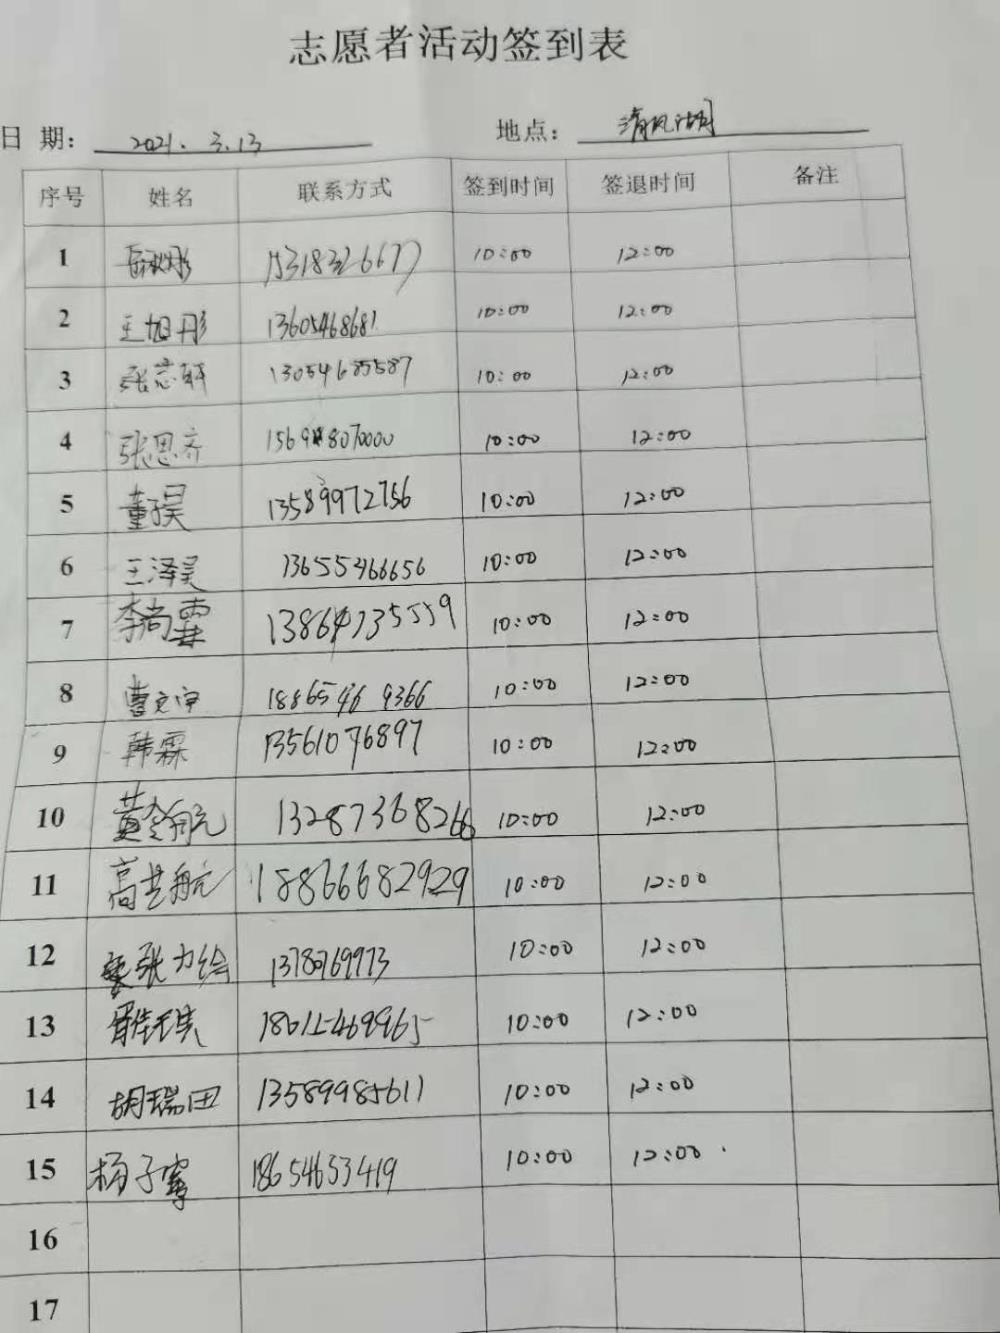 志愿者活动签到表
日 期： 2021. 3.13 地点： 清风湖
序号 姓名 联系方式 签到时间 签退时间 备注
1 15318326677 10:00 12:00
2 王旭彤 13605468681 10:00 12:00
3 张芯妍 13054685587 10:00 12:00
4 张思齐 10:00 12:00
5 董子昊 13589972756 10:00 12:00
6 王泽昊 13655466656 10:00 12:00
7 李尚霖 10:00 12:00
8 曹文宇 18865469366 10:00 12:00
9 韩霖 13561076897 10:00 12:00
10 黄令航 13287368266 10:00 12:00
11 高艺航 18866682929 10:00 12:00
12 张力绘 10:00 12:00
13 10:00 12:00
14 胡瑞田 13589985611 10:00 12:00
15 杨子寓 18654653419 10:00 12:00
16
17